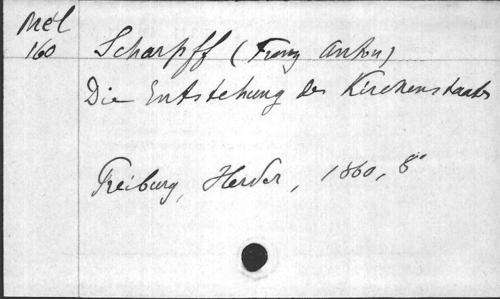 Mél
160 Scharpff (Franz Anton)
Die Entstehung des Kirchenstaates
Freiburg, Herder, 1860, 8°